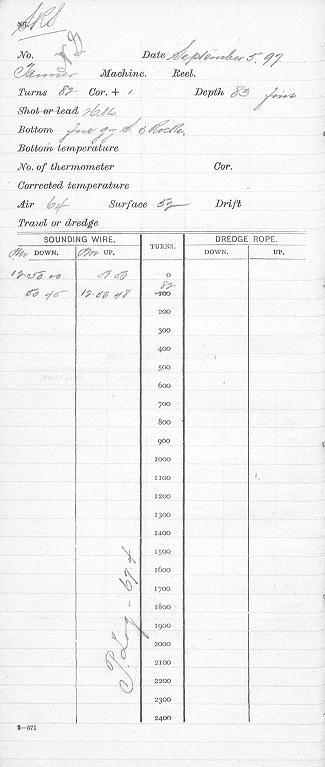 SRS
No. Date September 5, 97
Tanner Machine. Reel.
Turns 82 Cor. + 1 Depth 83 fms
Shot or lead
Bottom fne gy S. & Rocks.
Bottom temperature
No. of thermometer Cor.
Corrected temperature
Air 64 Surface 52 Drift
Trawl or dredge
SOUNDING WIRE. TURNS. DREDGE ROPE.
Pm DOWN. Pm UP. DOWN. UP.
0
82
100
200
300
400
500
600
700
800
900
1000
1100
1200
1300
1400
1500
1600
1700
1800
1900
2000
2100
2200
2300
2400
P. Log - 69.4
2—571